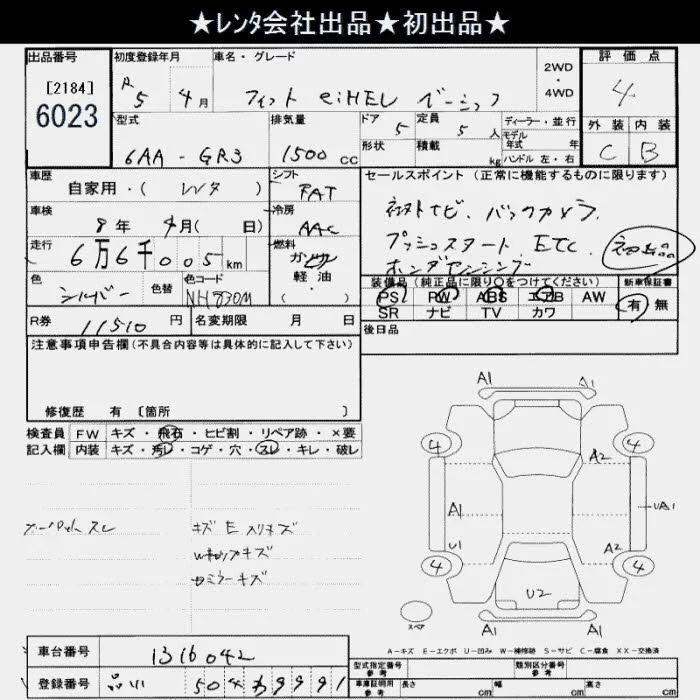 ★レンタ会社出品★初出品★
出品番号 初度登録年月 車名・グレード 2WD・4WD 評価点
[2184] 6023
R5年 4月 フィット e:HEV ベーシック 4
型式 排気量 ドア 5 定員 5人 ディーラー・並行 外装 内装
6AA-GR3 1500cc 形状 積載 kg モデル年式 年 ハンドル 左・右 C B
車歴 自家用・(レンタ) シフト FAT セールスポイント(正常に機能するものに限ります)
車検 8年 4月(日) 冷房 AAC ナビ、バックカメラ
走行 6万6千005km 燃料 ガソリン・軽油・( ) プッシュスタート、ETC 初出品
色 シルバー 色替 色コード NH830M ホンダセンシング
装備品(純正品に限り○をつけてください) 新車保証書
PS PW ABS エアB AW 有 無
R券 11510円 名変期限 月 日 SR ナビ TV カワ
注意事項申告欄(不具合内容等は具体的に記入して下さい) 後日品
修復歴 有 [箇所 ]
検査員 FW キズ・飛石・ヒビ割・リペア跡・×要
記入欄 内装 キズ・汚レ・コゲ・穴・スレ・キレ・破レ
A1 A1
4 4
A2
A1 UA1
U1 A2
4 4
U2
スペア A1 A1
キズ E
キズ
ミラーキズ
A-キズ E-エクボ U-凹み W-補修跡 S-サビ C-腐食 XX-交換済
車台番号 1316042 型式指定番号 参考 類別区分番号 参考
登録番号 品川 504 わ 9991 車庫証明用 参考 長さ cm 幅 cm 高さ cm